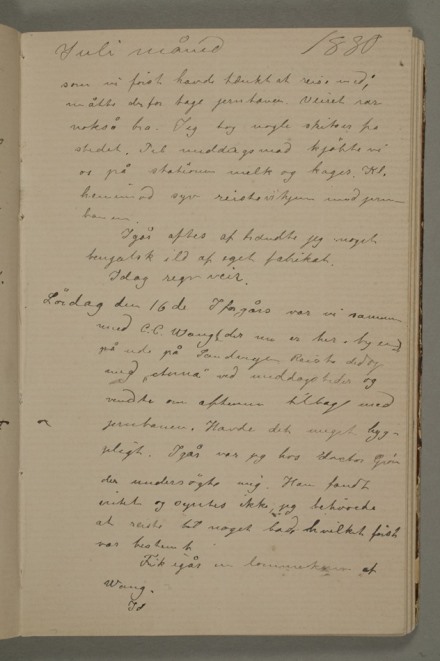 Juli måned 1880
som vi först havde tænkt at reise med,
måtte derfor tage jernbanen. Veiret var
också bra. Jeg tog nogle skitser fra
stedet. Til middagsmad kjöbte vi
os på stationen melk og kager. Kl.
henimod syv reiste vi hjem med jern
banen.
Igår aftes afbrændte jeg noget
bengalsk ild af eget fabrikat.
Idag regnveir.
Löirdag den 16de Iforgårs var vi sammen
med C.C. Wang der nu er her i byen
på ude på Sandvigen Reiste did
med ved middagstider og
vendte om aftenen tilbage med
jernbanen. Havde det meget hyg-
geligt. Igår var jeg hos Doctor
der undersögte mig. Han fandt
og syntes ikke, jeg behövede
at reise til noget bad hvilket först
var bestemt.
Fik igår en af
Wang.
Id